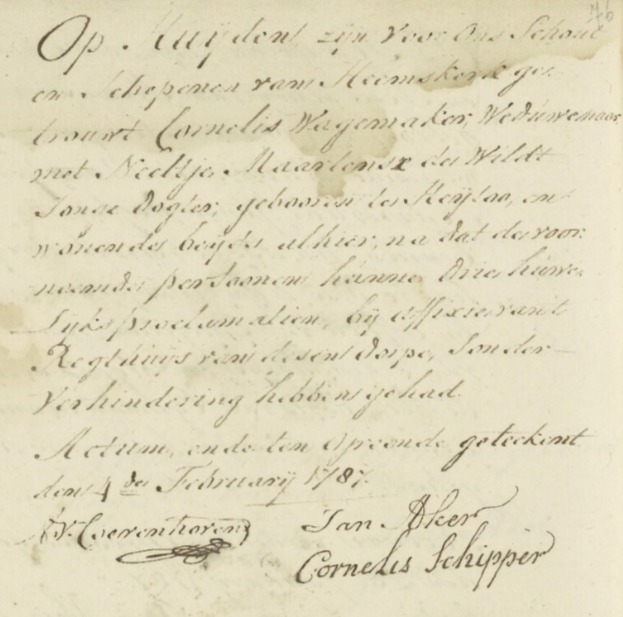 76
Op Huijden, zijn voor Ons Schout
en Schepenen van Heemskerk ge-
trouwt Cornelis Wagemaker, Weduwenaar
met Neeltje Maartensz de Wildt
Jonge Dogter, gebooren te Heijloo, en
wonende beyde alhier, na dat de voor-
noemde persoonen hunne drie huwe-
lyks proclamatien, by affixie van't
Regthuijs van desen dorpe, sonder
Verhindering hebben gehad.
Actum, en de ten oirconde geteekent
den 4 de February 1787.
Jan Aker
Cornelis Schipper